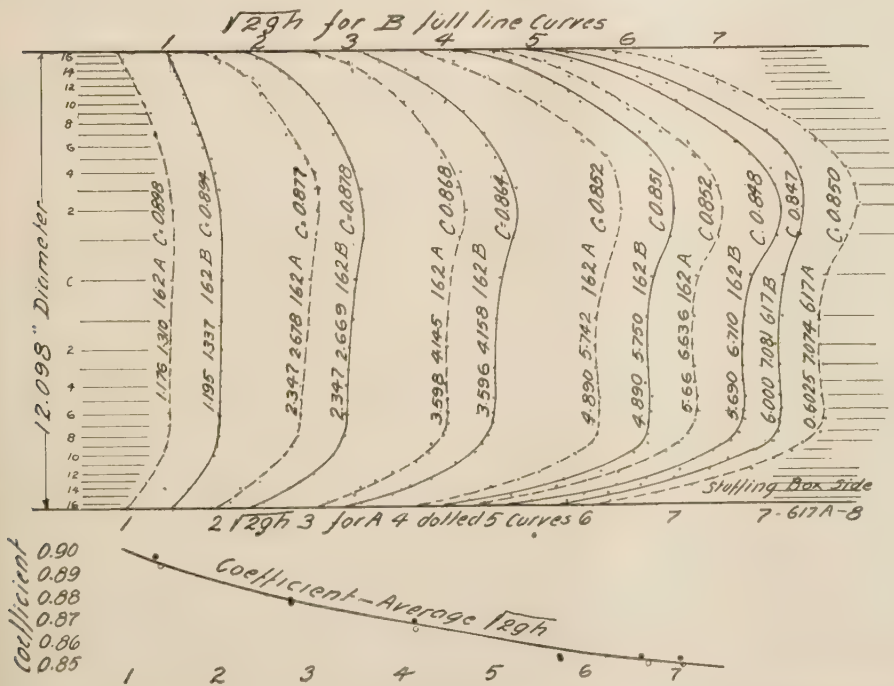 √2gh for B full line Curves
1 2 3 4 5 6 7
16
14
12
10
8
6
4
2
C
2
4
6
8
10
12
14
16
12.098" Diameter
1.176 1.310 162 A C=0.898
1.195 1.337 162 B C=0.894
2.347 2.678 162 A C=0.877
2.347 2.669 162 B C=0.878
3.598 4.145 162 A C 0.868
3.596 4.158 162 B C=0.864
4.890 5.742 162 A C=0.852
4.890 5.750 162 B C 0.851
5.66 6.636 162 A C 0.852
5.690 6.710 162 B C. 0.848
6.000 7.081 617 B C 0.847
0.6025 7.074 617A C=0.850
Stuffing Box Side
1 2 √2gh 3 for A 4 dotted 5 Curves 6 7 7-617A-B
Coefficient
0.90
0.89
0.88
0.87
0.86
0.85
Coefficient-Average √2gh
1 2 3 4 5 6 7